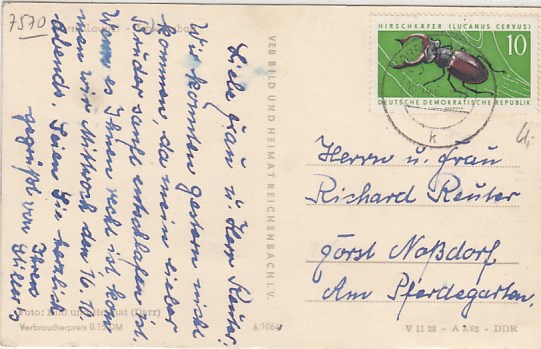 7570
Liebe Frau u. Herr Reuter!
Wir konnten gestern nicht
kommen da mein lieber
Bruder sanft entschlafen ist.
Wenn es Ihnen recht ist kom
men wir Mittwoch den 16.10
abends. Seien Sie herzlich
gegrüßt von
Ihres
VEB BILD UND HEIMAT REICHENBACH I. V.
HIRSCHKÄFER (LUCANUS CERVUS)
10
DEUTSCHE DEMOKRATISCHE REPUBLIK
k
Herrn u. Frau
Richard Reuter
Forst Noßdorf
Am Pferdegarten,
Foto: Bild und Heimat (Darr)
Verbraucherpreis 0.15 DM
V 11 28 - A 3/62 - DDR